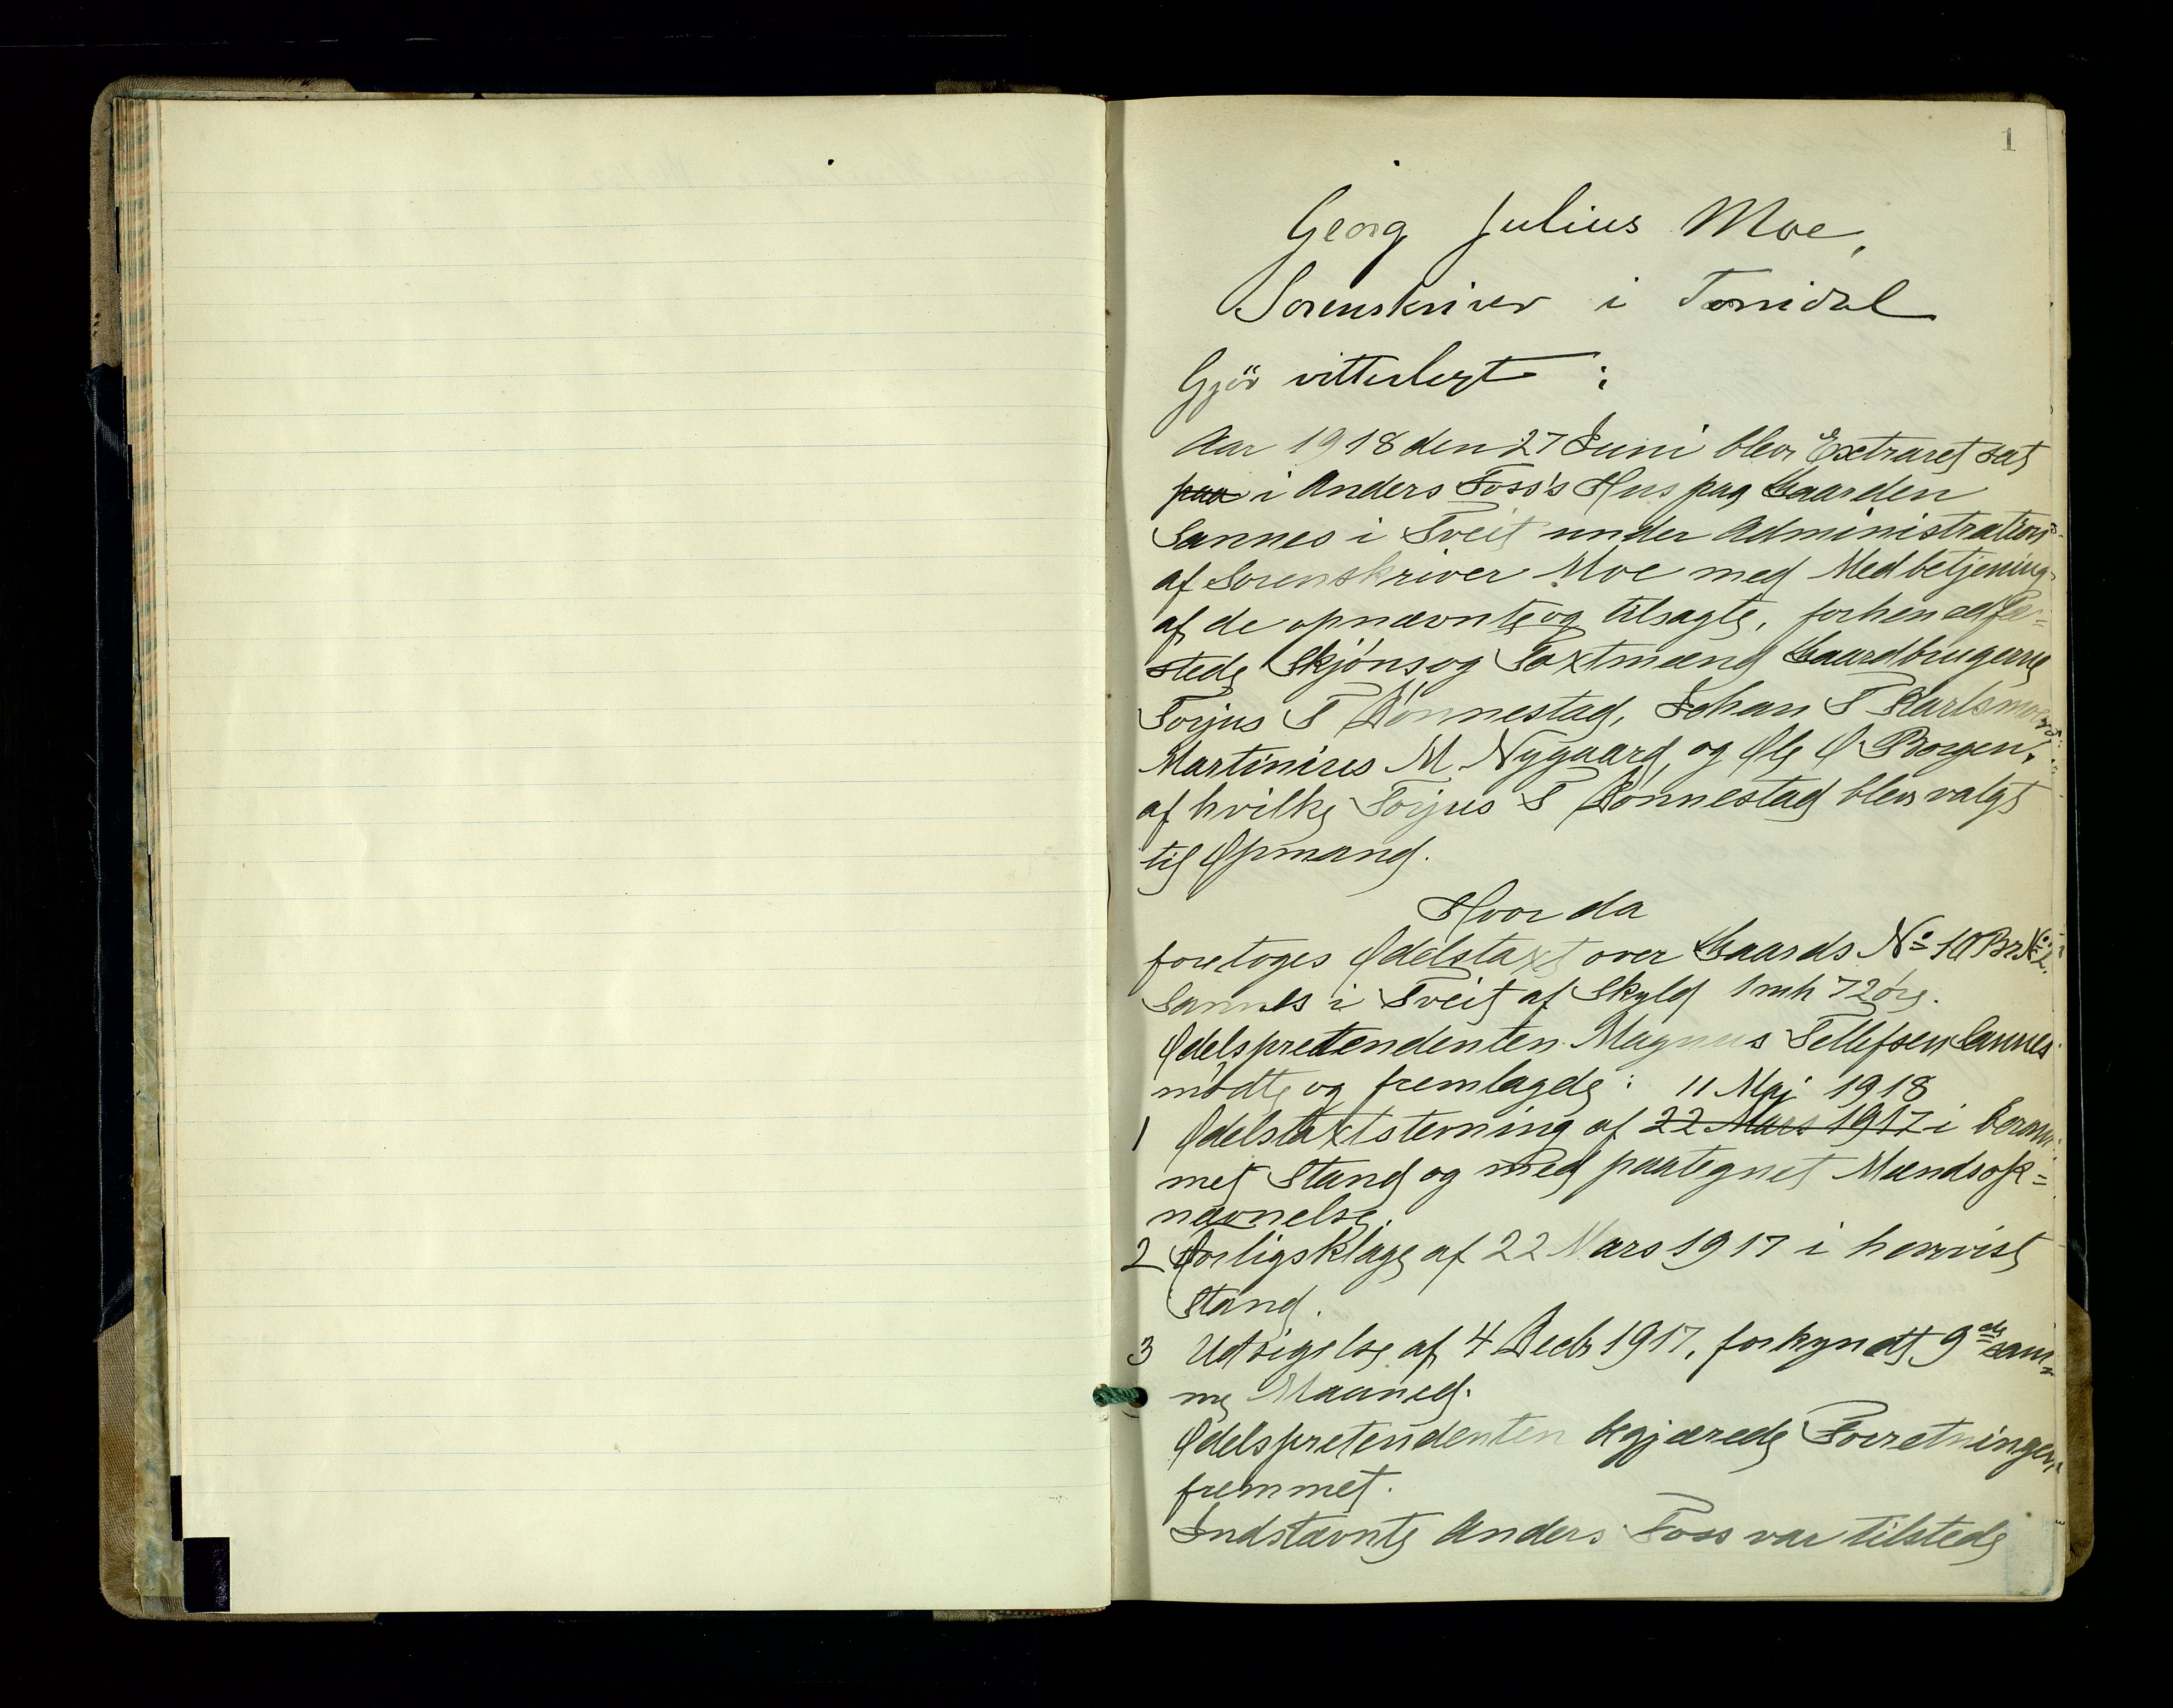 1
Georg Julius Moe,
Sorenskriver i Torridal
Gjör vitterligt :
Aar 1918 den 27 Juni blev Extraret sat
paa i Anders Foss's Hus paa Gaarden
Sannes i Tveit under Administration
af Sorenskriver Moe med Medbetjening
af de opnævnte og tilsagte, forhen edfæ=
stede Skjöns og Taxtmænd Gaardbrugerne
Torjus T Dönnestad, Johan T Karlsmoen
Martinius M Nygaard, og Ole O Borgen,
af hvilke Torjus T Dönnestad blev valgt
til Opmand.
Hvor da
foretoges Odelstaxt over Gaards No 10 Br No 2.
Sannes i Tveit af Skyld 1 mk 72 öre.
Odelspretendenten Magnus Tellefsen Sannes
mödte og fremlagde :
11 Mai 1918
1 Odelstaxtstevning af 22 Mars 1917 i beram
met Stand og med paategnet Mændsop=
nævnelse.
2 Forligsklage af 22 Mars 1917 i henvist
Stand.
3 Udsigelse af 4 Decbr 1917, forkyndt 9de sam=
me Maaned.
Odelspretendenten begjærede Forretningen
fremmet.
Indstævnte Anders Foss var tilstede